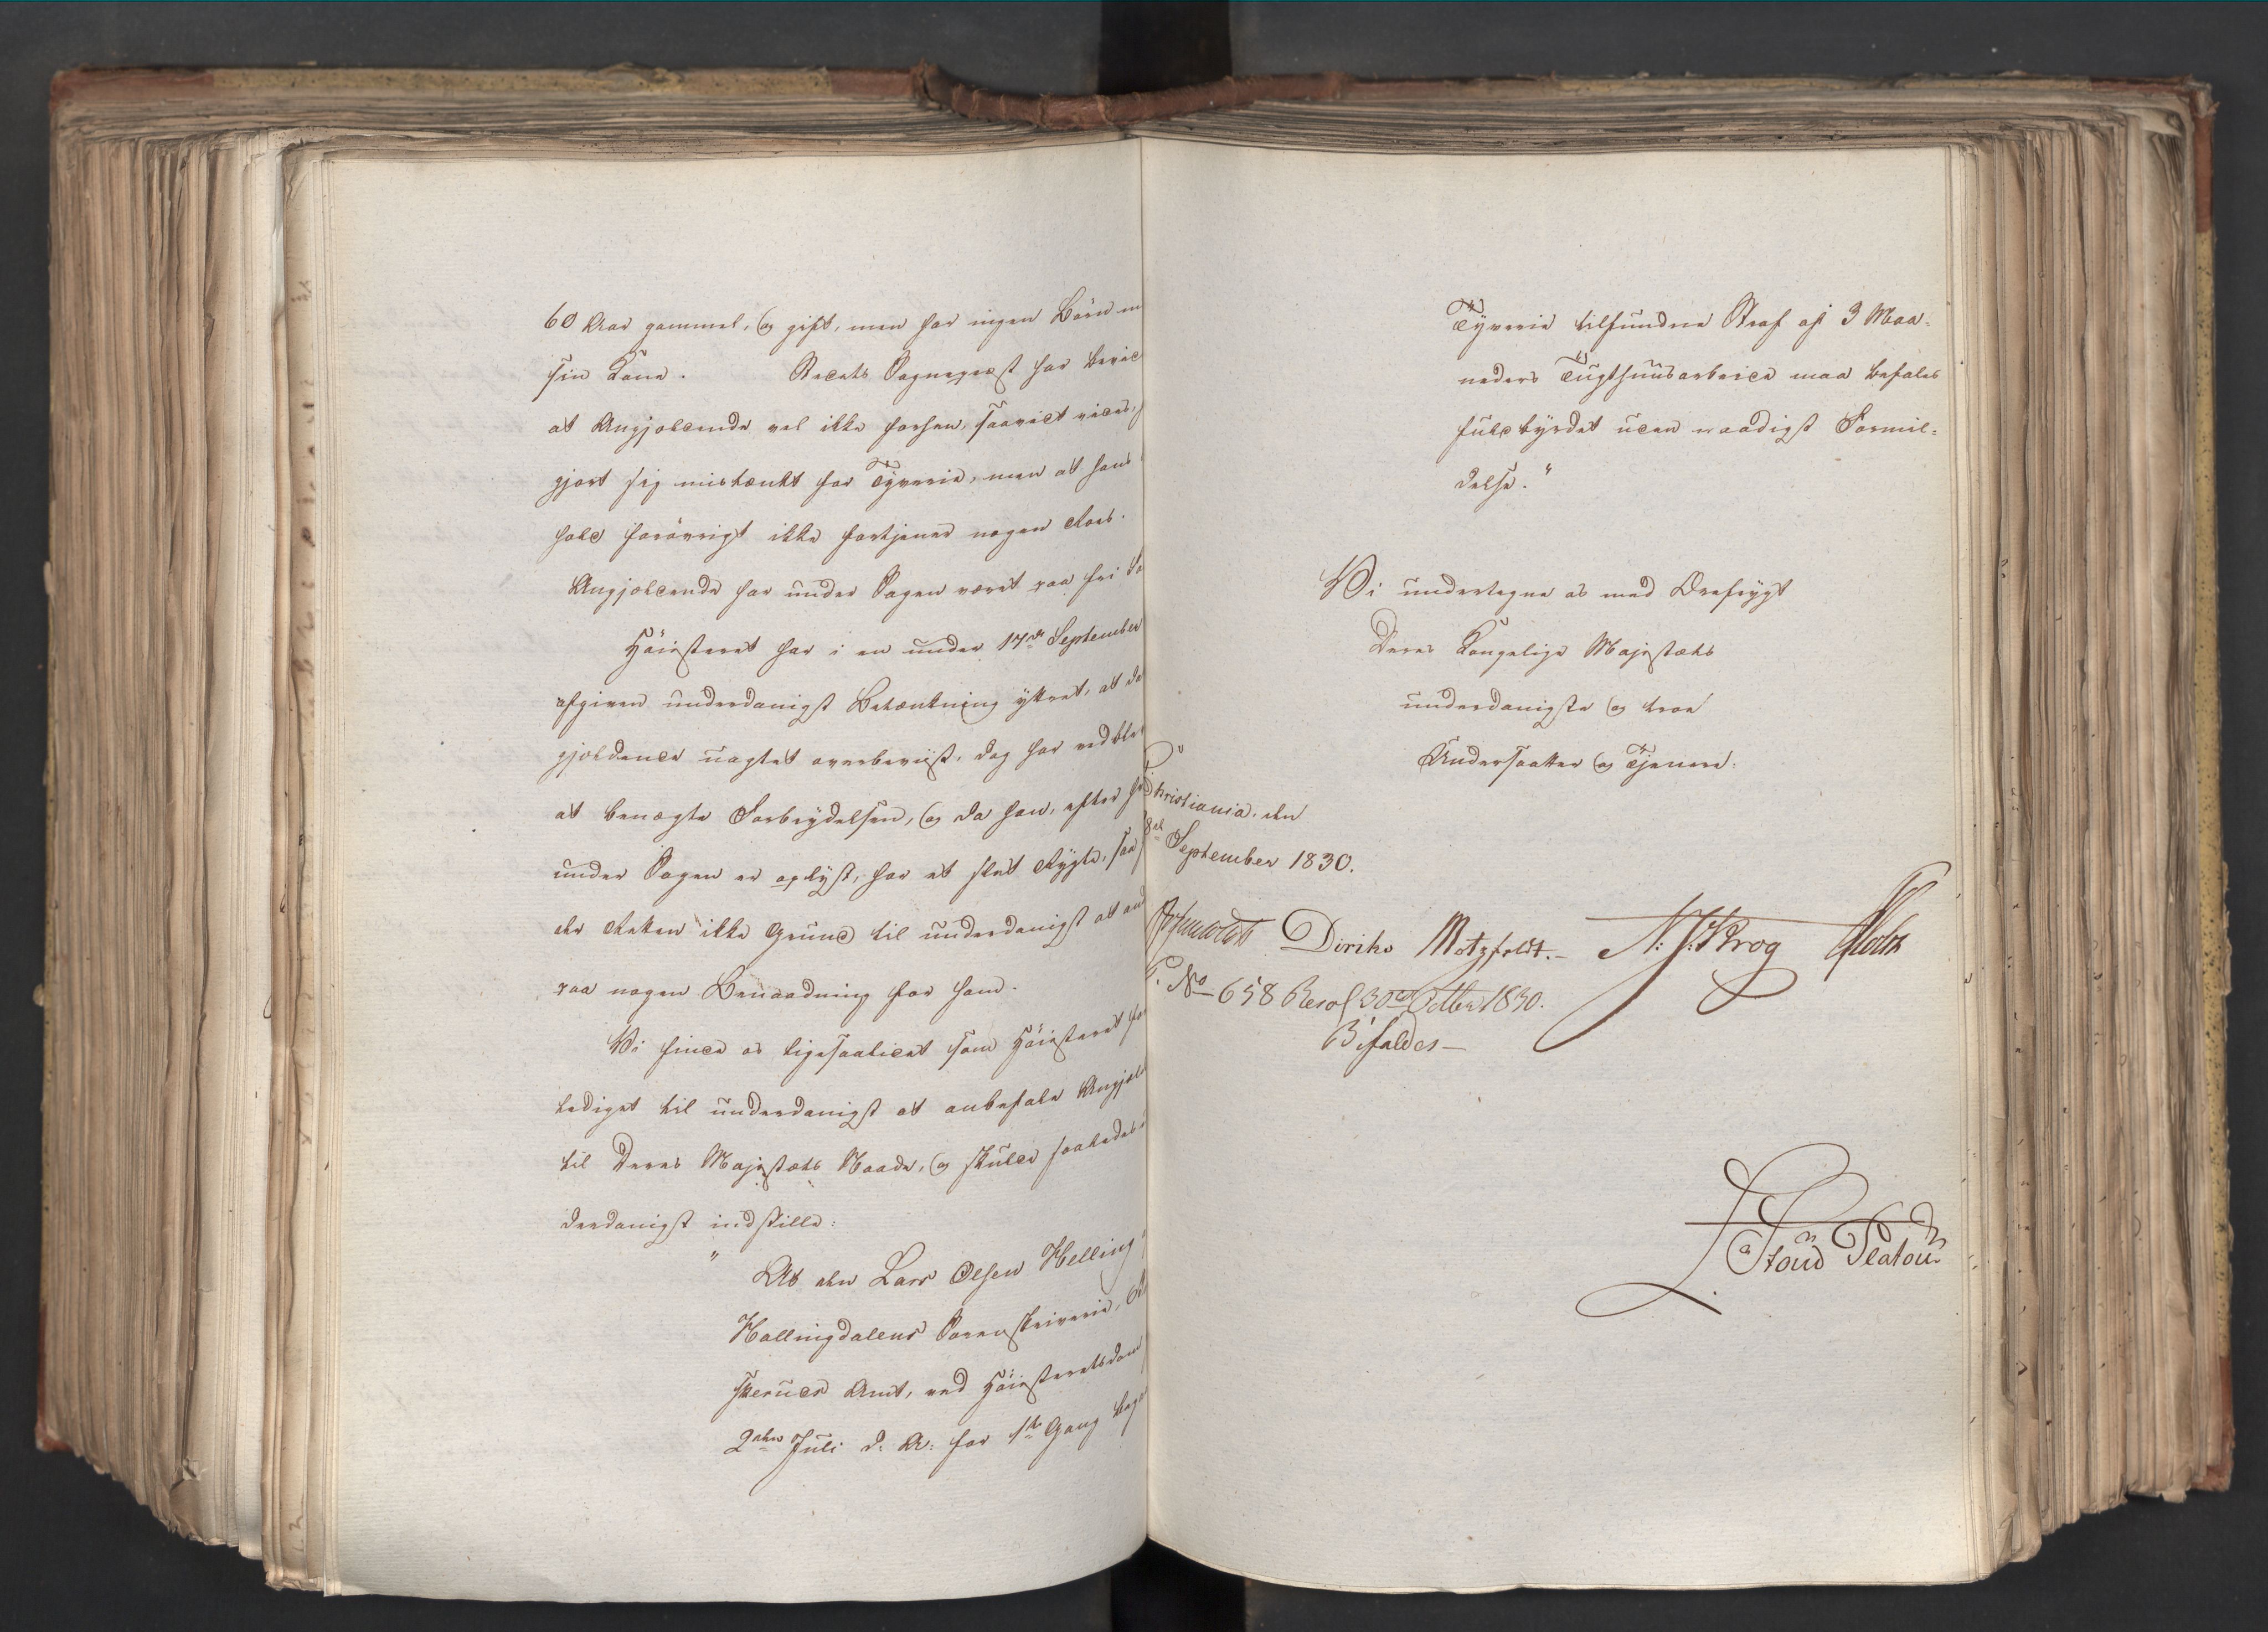 60 Aar gammel, og gift, men har ingen Børn m
sin Kone. Stedets Sognepræst har bevid
at Angjældende vel ikke forhen, saavidt vides,
gjort sig mistænkt for Tyverie, men at hans
hold forøvrigt ikke fortjener nogen Roes.
Angjældende har under Sagen været paa fri Fo
Höiesteret har i en under 17de September
afgiven underdanigst Betænkning yttret, at da
gjeldende uagtet overbeviist, dog har vedble
at benægte Forbrydelsen, og da han, efter
under Sagen er oplyst, har et slet Rygte, saa
der Retten ikke Grund til underdanigst at an
paa nogen Benaadning for ham.
Vi finde os ligesaalidet som Höiesteret for
lediget til underdanigst at anbefale Angjæld
til Deres Majestæts Naade, og skulde saaledes
derdanigst indstille:
" At den Lars Olsen Helling
Hallingdalens Sorenskriverie,
skeruds Amt, ved Höiesteretsdom
2den Juli d: A: for 1ste Gang beg
Tyverie tilfundne Straf af 3 Maa-
neders Tugthuusarbeide maa befales
fuldbyrdet uden naadigst Formil-
delse."
Vi undertegne os med Ærefrygt
Deres Kongelige Majestæts
underdanigste og troe
Undersaatter og Tjenere.
Christiania, den
September 1830.
Diriks Motzfeldt.- N: J: Krog
No 658 Resol 30te Octbr 1830.
Bifaldes-
Stoud Platou